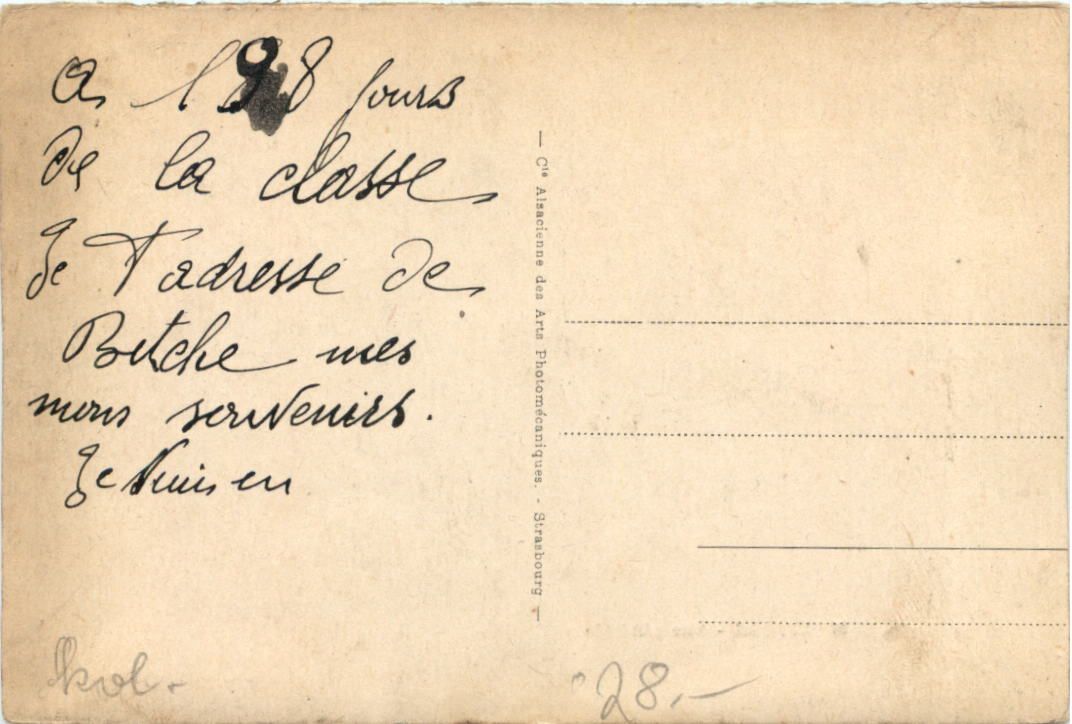 A 198 jours
de la classe
Je t'adresse de
Bitche mes
mons souvenirs.
Je suis en
— Cie Alsacienne des Arts Photomécaniques. - Strasbourg —
28.-